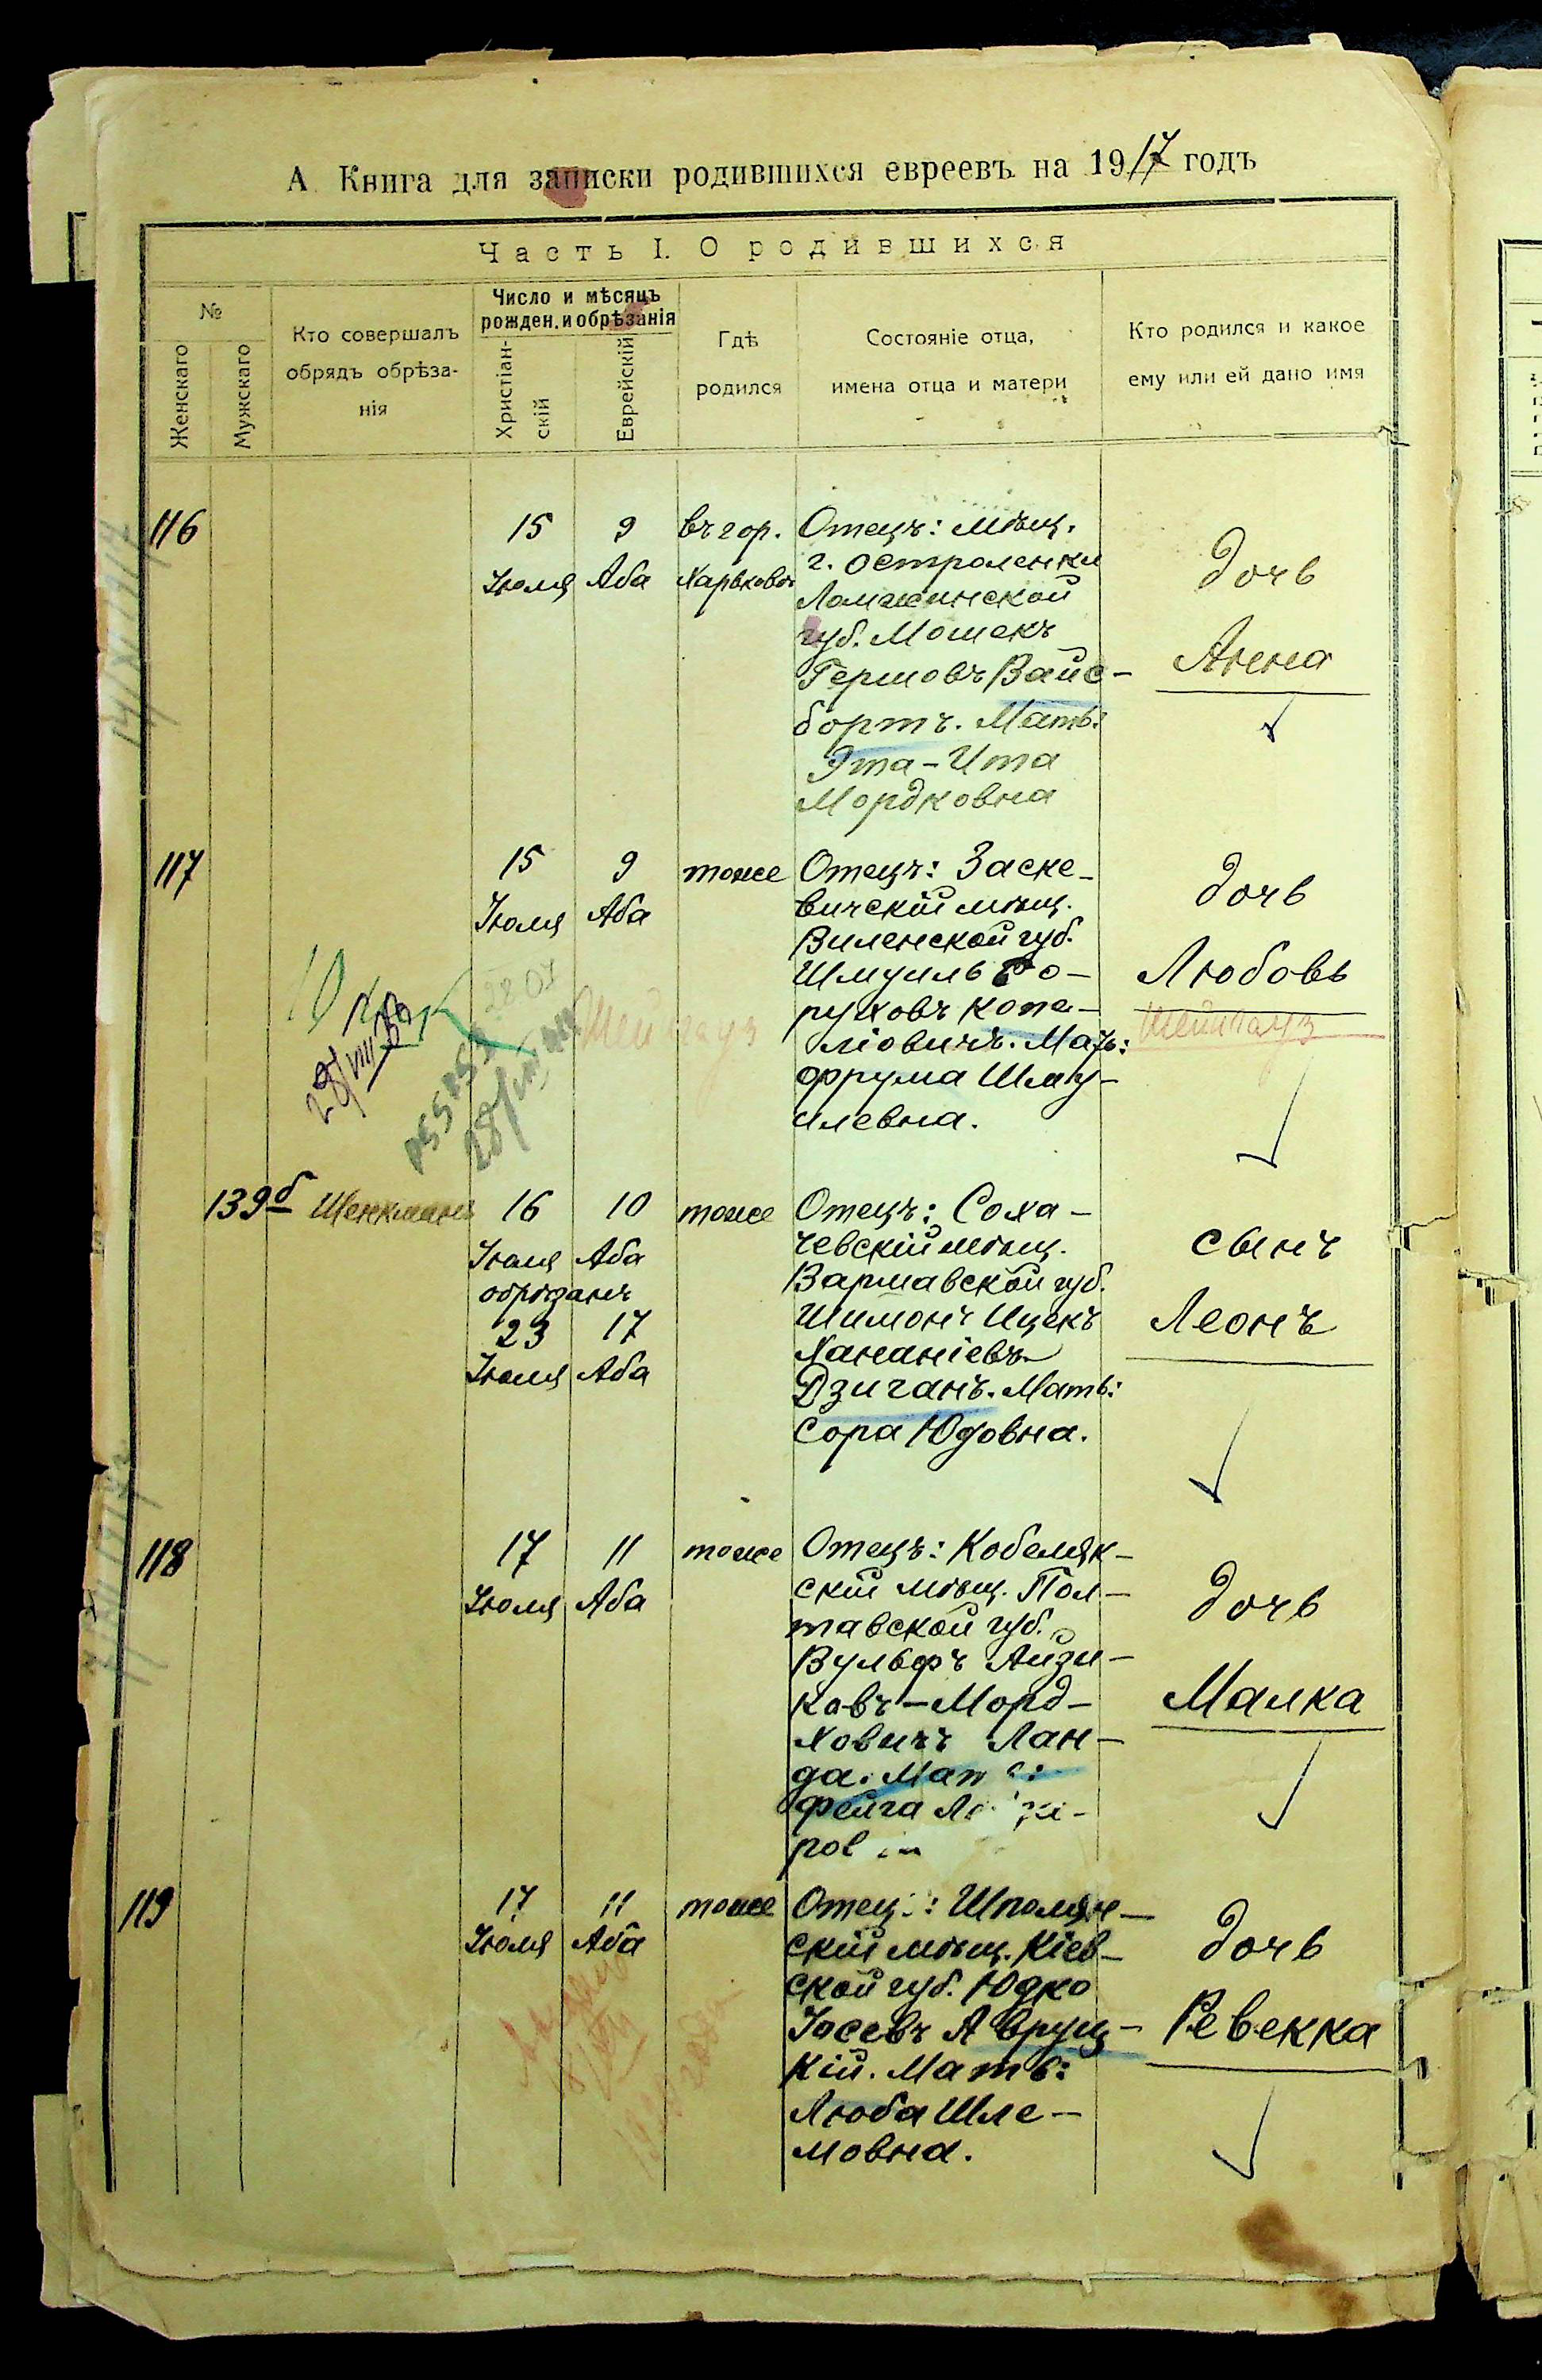 А Книга для записки родившихся евреевъ на 1917 годъ
Часть I. О родившихся
№
Женскаго
Мужскаго
Кто совершалъ
обрядъ обрѣза-
нія
Число и мѣсяцъ
рожден. и обрѣзанія
Христіан-
скій
Еврейскій
Гдѣ
родился
Состояніе отца,
имена отца и матери
Кто родился и какое
ему или ей дано имя
116
15
Іюля
9
Аба
въ гор.
Харьковѣ
Отецъ: мѣщ.
г. Остроленки
Ломжинской
губ. Мошекъ
Гершовъ Вайс-
бортъ. Мать:
Эта-Ита
Мордковна
дочь
Анна
117
15
Іюля
9
Аба
тоже
Отецъ: Заске-
вичскій мѣщ.
Виленской губ.
Шмуилъ Бо-
руховъ Копе-
ліовичъ. Мать:
Фрума Шму-
илевна.
дочь
Любовь
Шейнгауз
Шейнгауз
28/VIII
139б
Шенкманъ
16
Іюля
обрѣзанъ
23
Іюля
10
Аба
17
Аба
тоже
Отецъ: Соха-
чевскій мѣщ.
Варшавской губ.
Шимонъ Ицекъ
Хананіевъ
Дзиганъ. Мать:
Сора Юдовна.
сынъ
Леонъ
118
17
Іюля
11
Аба
тоже
Отецъ: Кобеляк-
скій мѣщ. Пол-
тавской губ.
Вульфъ Айзи-
ковъ-Морд-
ховичъ Лан-
да. Мать:
Фейга
дочь
Малка
119
17
Іюля
11
Аба
тоже
Отецъ: Шполян-
скій мѣщ. Кіев-
ской губ. Юдко
Іосевъ Авруц-
кій. Мать:
Люба Шле-
мовна.
дочь
Ревекка